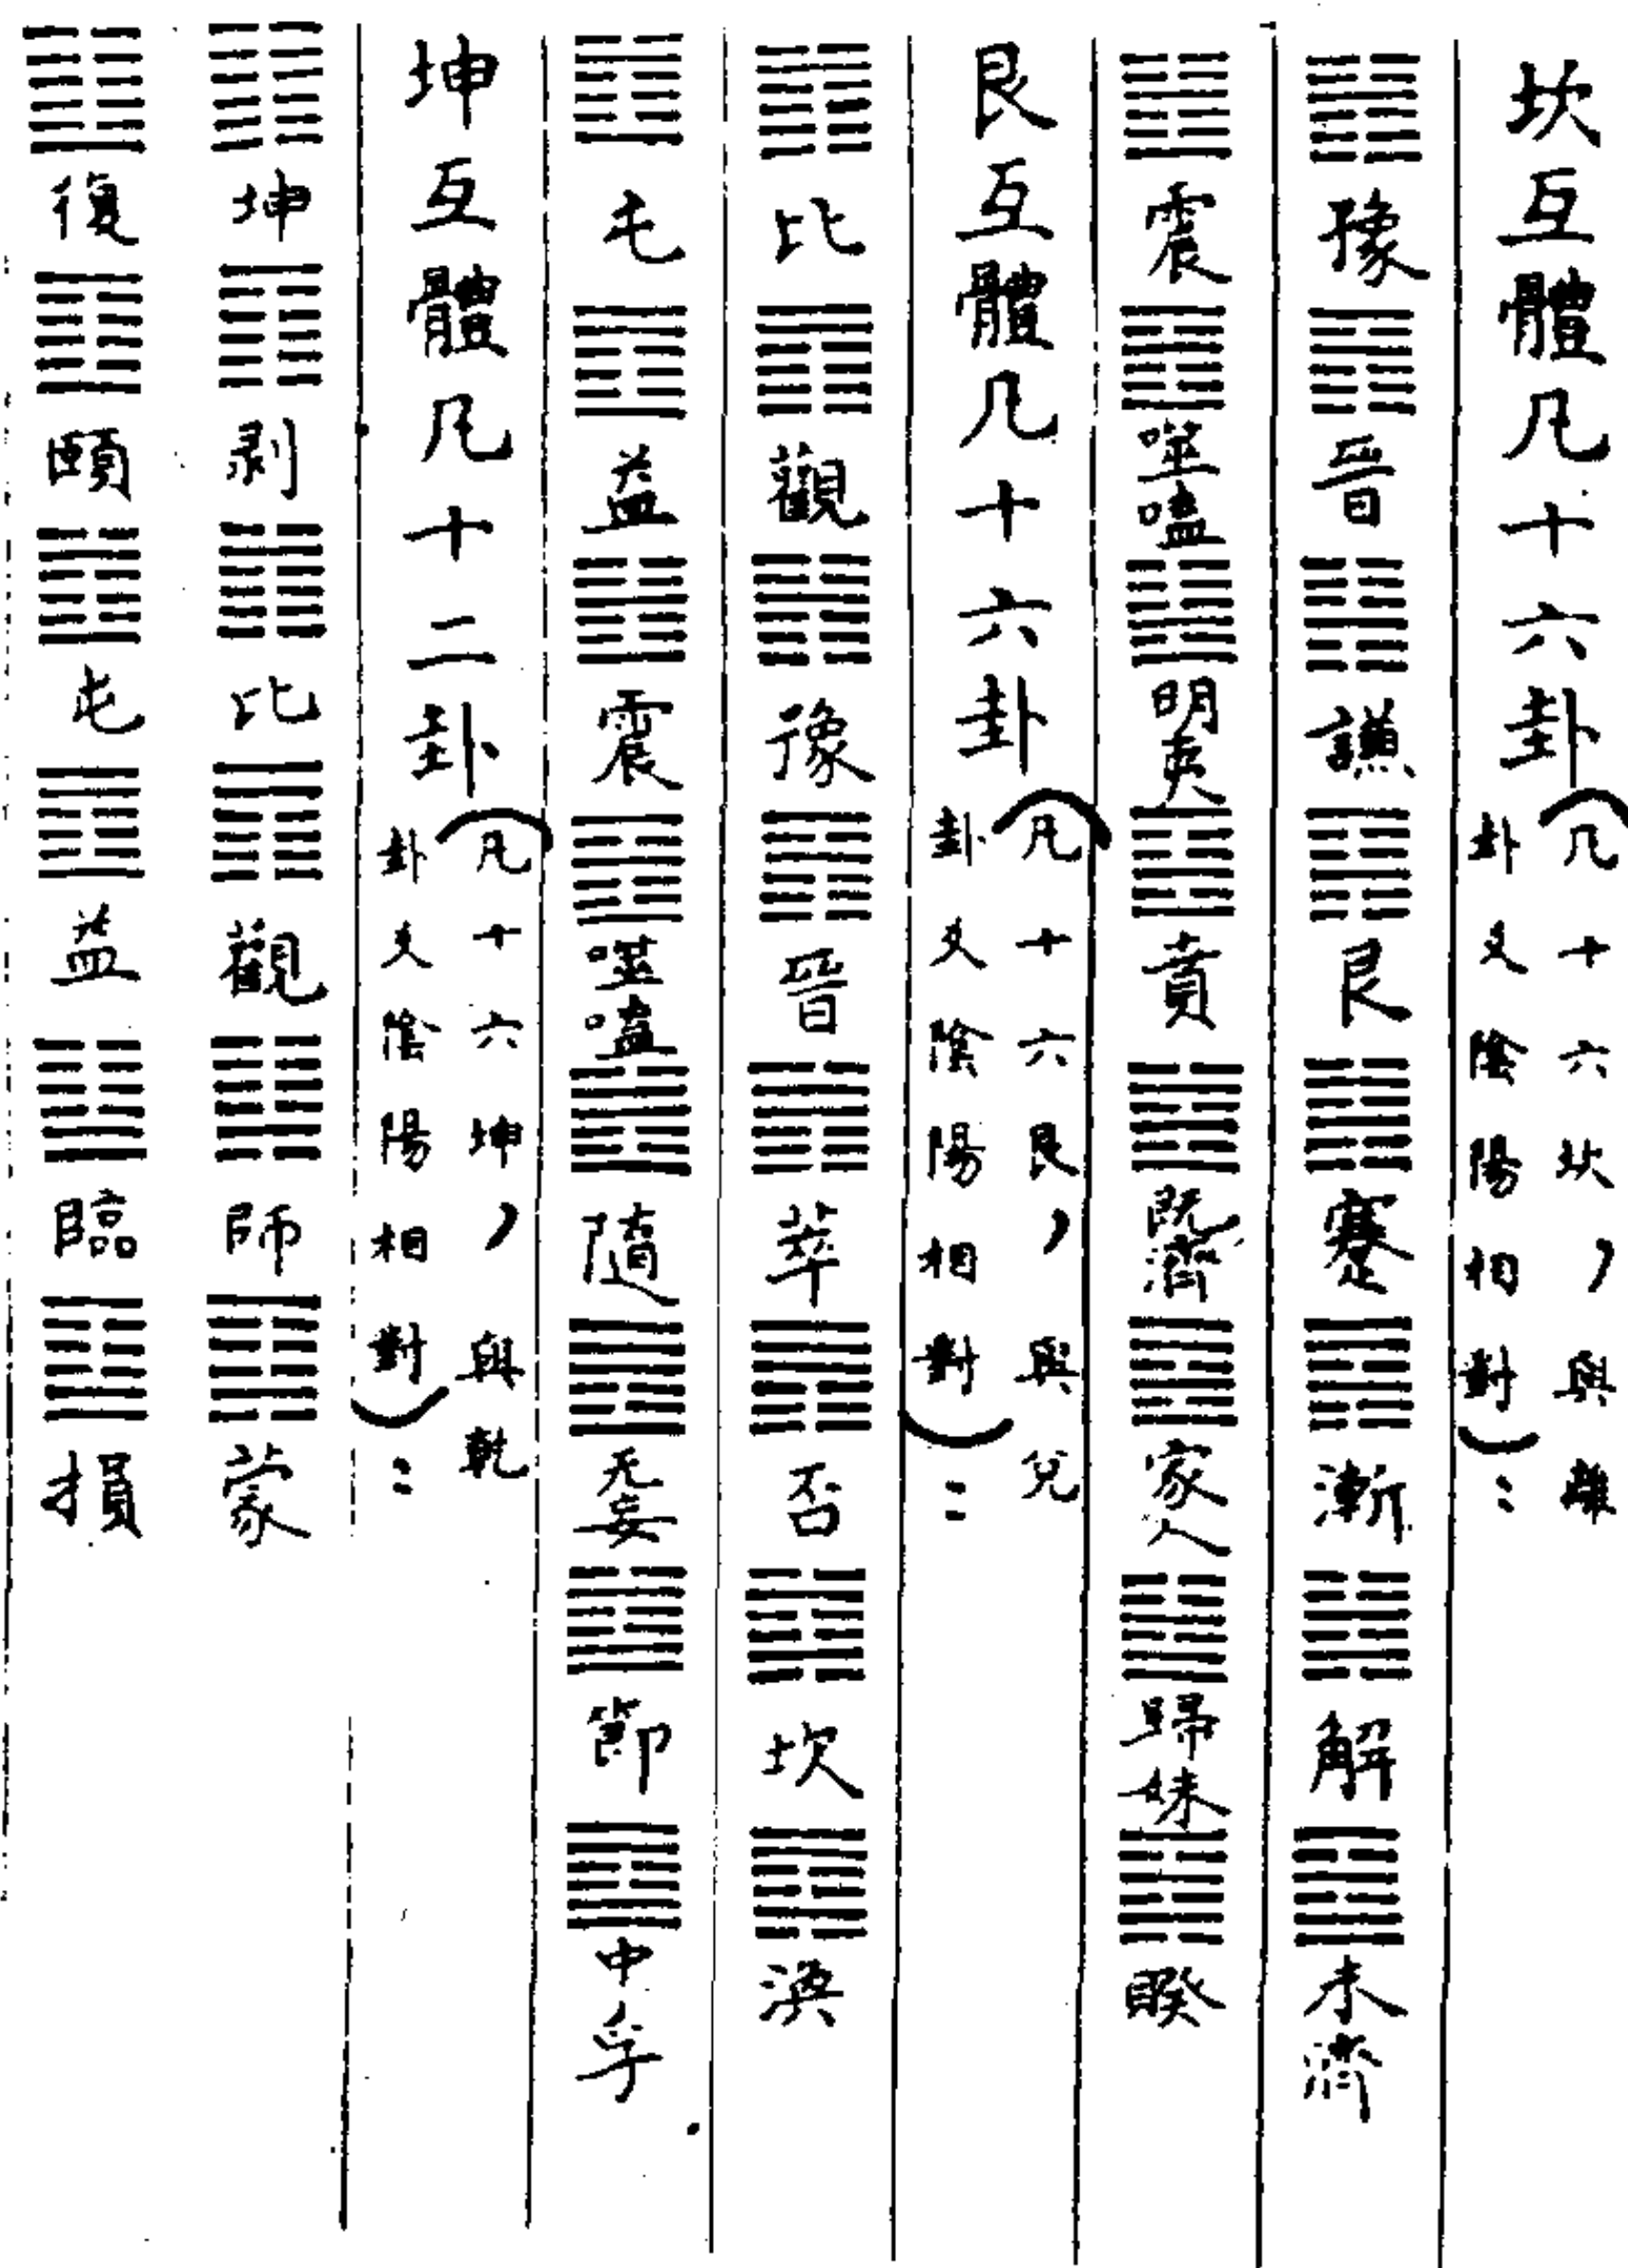 坎互體凡十六卦（凡十六坎，與離卦爻陰陽相對）：
䷏豫䷢晉䷎謙䷳艮䷦蹇䷴漸䷧解䷿未濟
䷲震䷔噬嗑䷣明夷䷕賁䷾既濟䷤家人䷵歸妹䷥睽
艮互體凡十六卦（凡十六艮，與兌卦爻陰陽相對）：
䷇比䷓觀䷏豫䷢晉䷬萃䷋否䷜坎䷺渙
䷂屯䷩益䷲震䷔噬嗑䷐隨䷘无妄䷻節䷼中孚
坤互體凡十二卦（凡十六坤，與乾卦爻陰陽相對）：
䷁坤䷖剥䷇比䷓觀䷆師䷃蒙
䷗復䷚頤䷂屯䷩益䷒臨䷨損